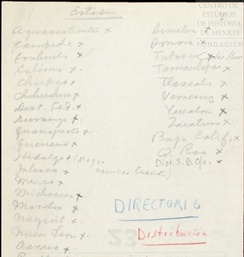 Estados
Aguascalientes x
Campeche x
Coahuila x
Colima x
Chiapas x
Chihuahua x
Dist. Fed. x
Durango x
Guanajuato x
Guerrero x
Hidalgo x
Jalisco x
Mexico x
Michoacan x
Morelos x
Nayarit x
Nuevo Leon x
Oaxaca x
Sinaloa x
Sonora x
Tabasco
Tamaulipas x
Tlaxcala x
Veracruz x
Yucatan x
Zacatecas x
Baja Calif. x
Q. Roo x
DIRECTORIO
Distribución
CENTRO
DE ESTUDIOS
DE HISTORIA
DE MEXICO
FUNDACIÓN